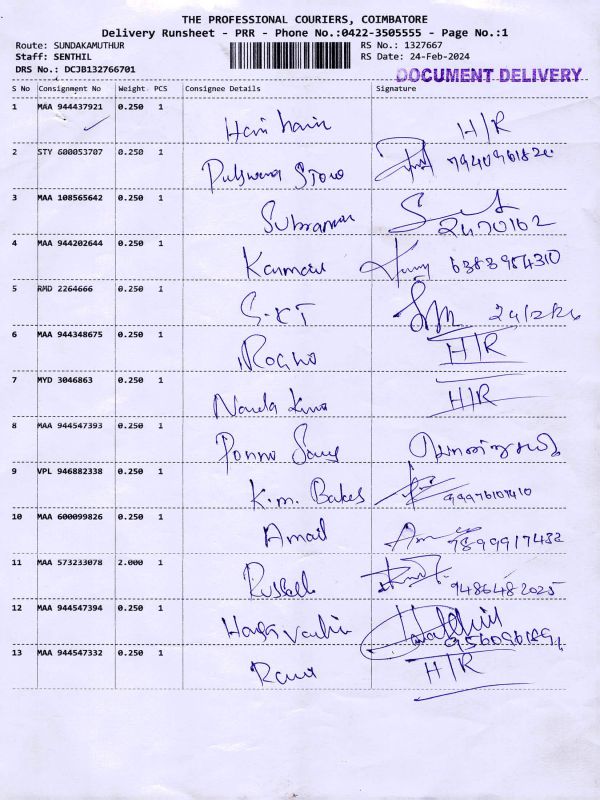 THE PROFESSIONAL COURIERS, COIMBATORE
Delivery Runsheet - PRR - Phone No.:0422-3505555 - Page No.:1
Route: SUNDAKAMUTHUR
RS No.: 1327667
Staff: SENTHIL
RS Date: 24-Feb-2024
DRS No.: DCJB132766701
DOCUMENT DELIVERY
S No Consignment No Weight PCS Consignee Details Signature
1 MAA 944437921 0.250 1 H/R
2 STY 600053707 0.250 1
3 MAA 108565642 0.250 1 2470162
4 MAA 944202644 0.250 1 6383984310
5 RMD 2264666 0.250 1 S-KT
6 MAA 944348675 0.250 1 H/R
7 MYD 3046863 0.250 1 H/R
8 MAA 944547393 0.250 1
9 VPL 946882338 0.250 1 K.m. Bakes
10 MAA 600099826 0.250 1 7899917432
11 MAA 573233078 2.000 1 Russell 9486482025
12 MAA 944547394 0.250 1
13 MAA 944547332 0.250 1 H/R